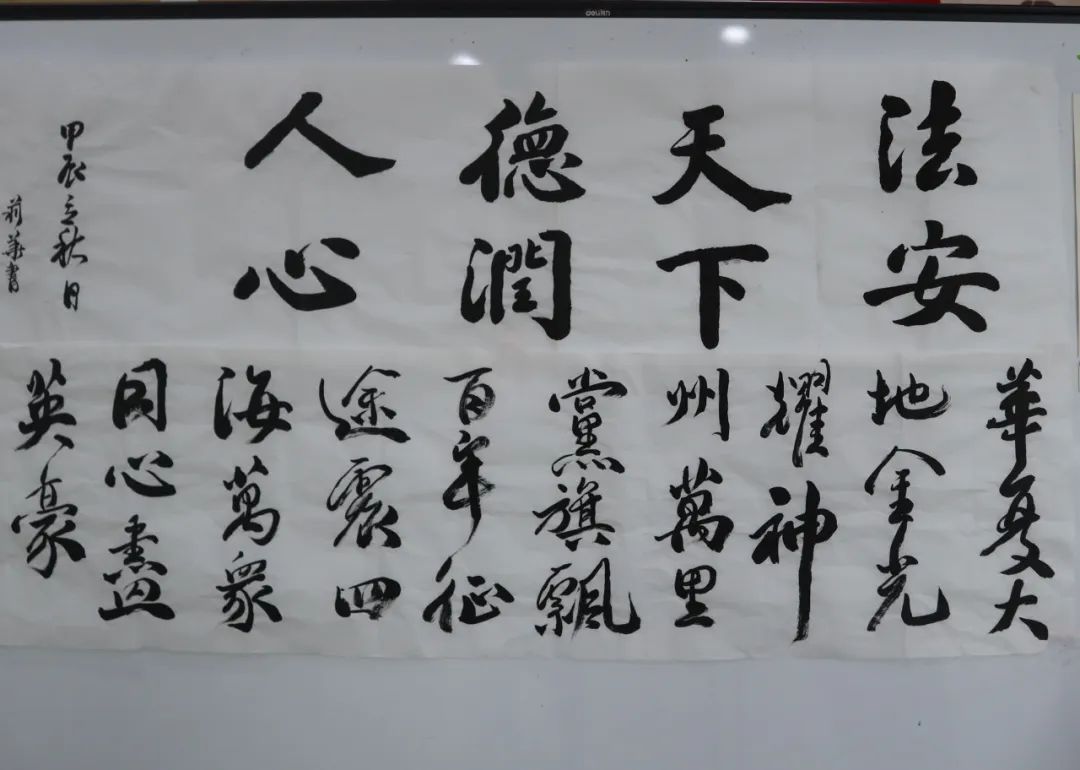 deli得力
法安
天下
德潤
人心
甲辰立秋日
莉華書
華夏大
地金光
耀神
州萬里
黨旗飄
百年征
途震四
海萬眾
同心盡
英豪